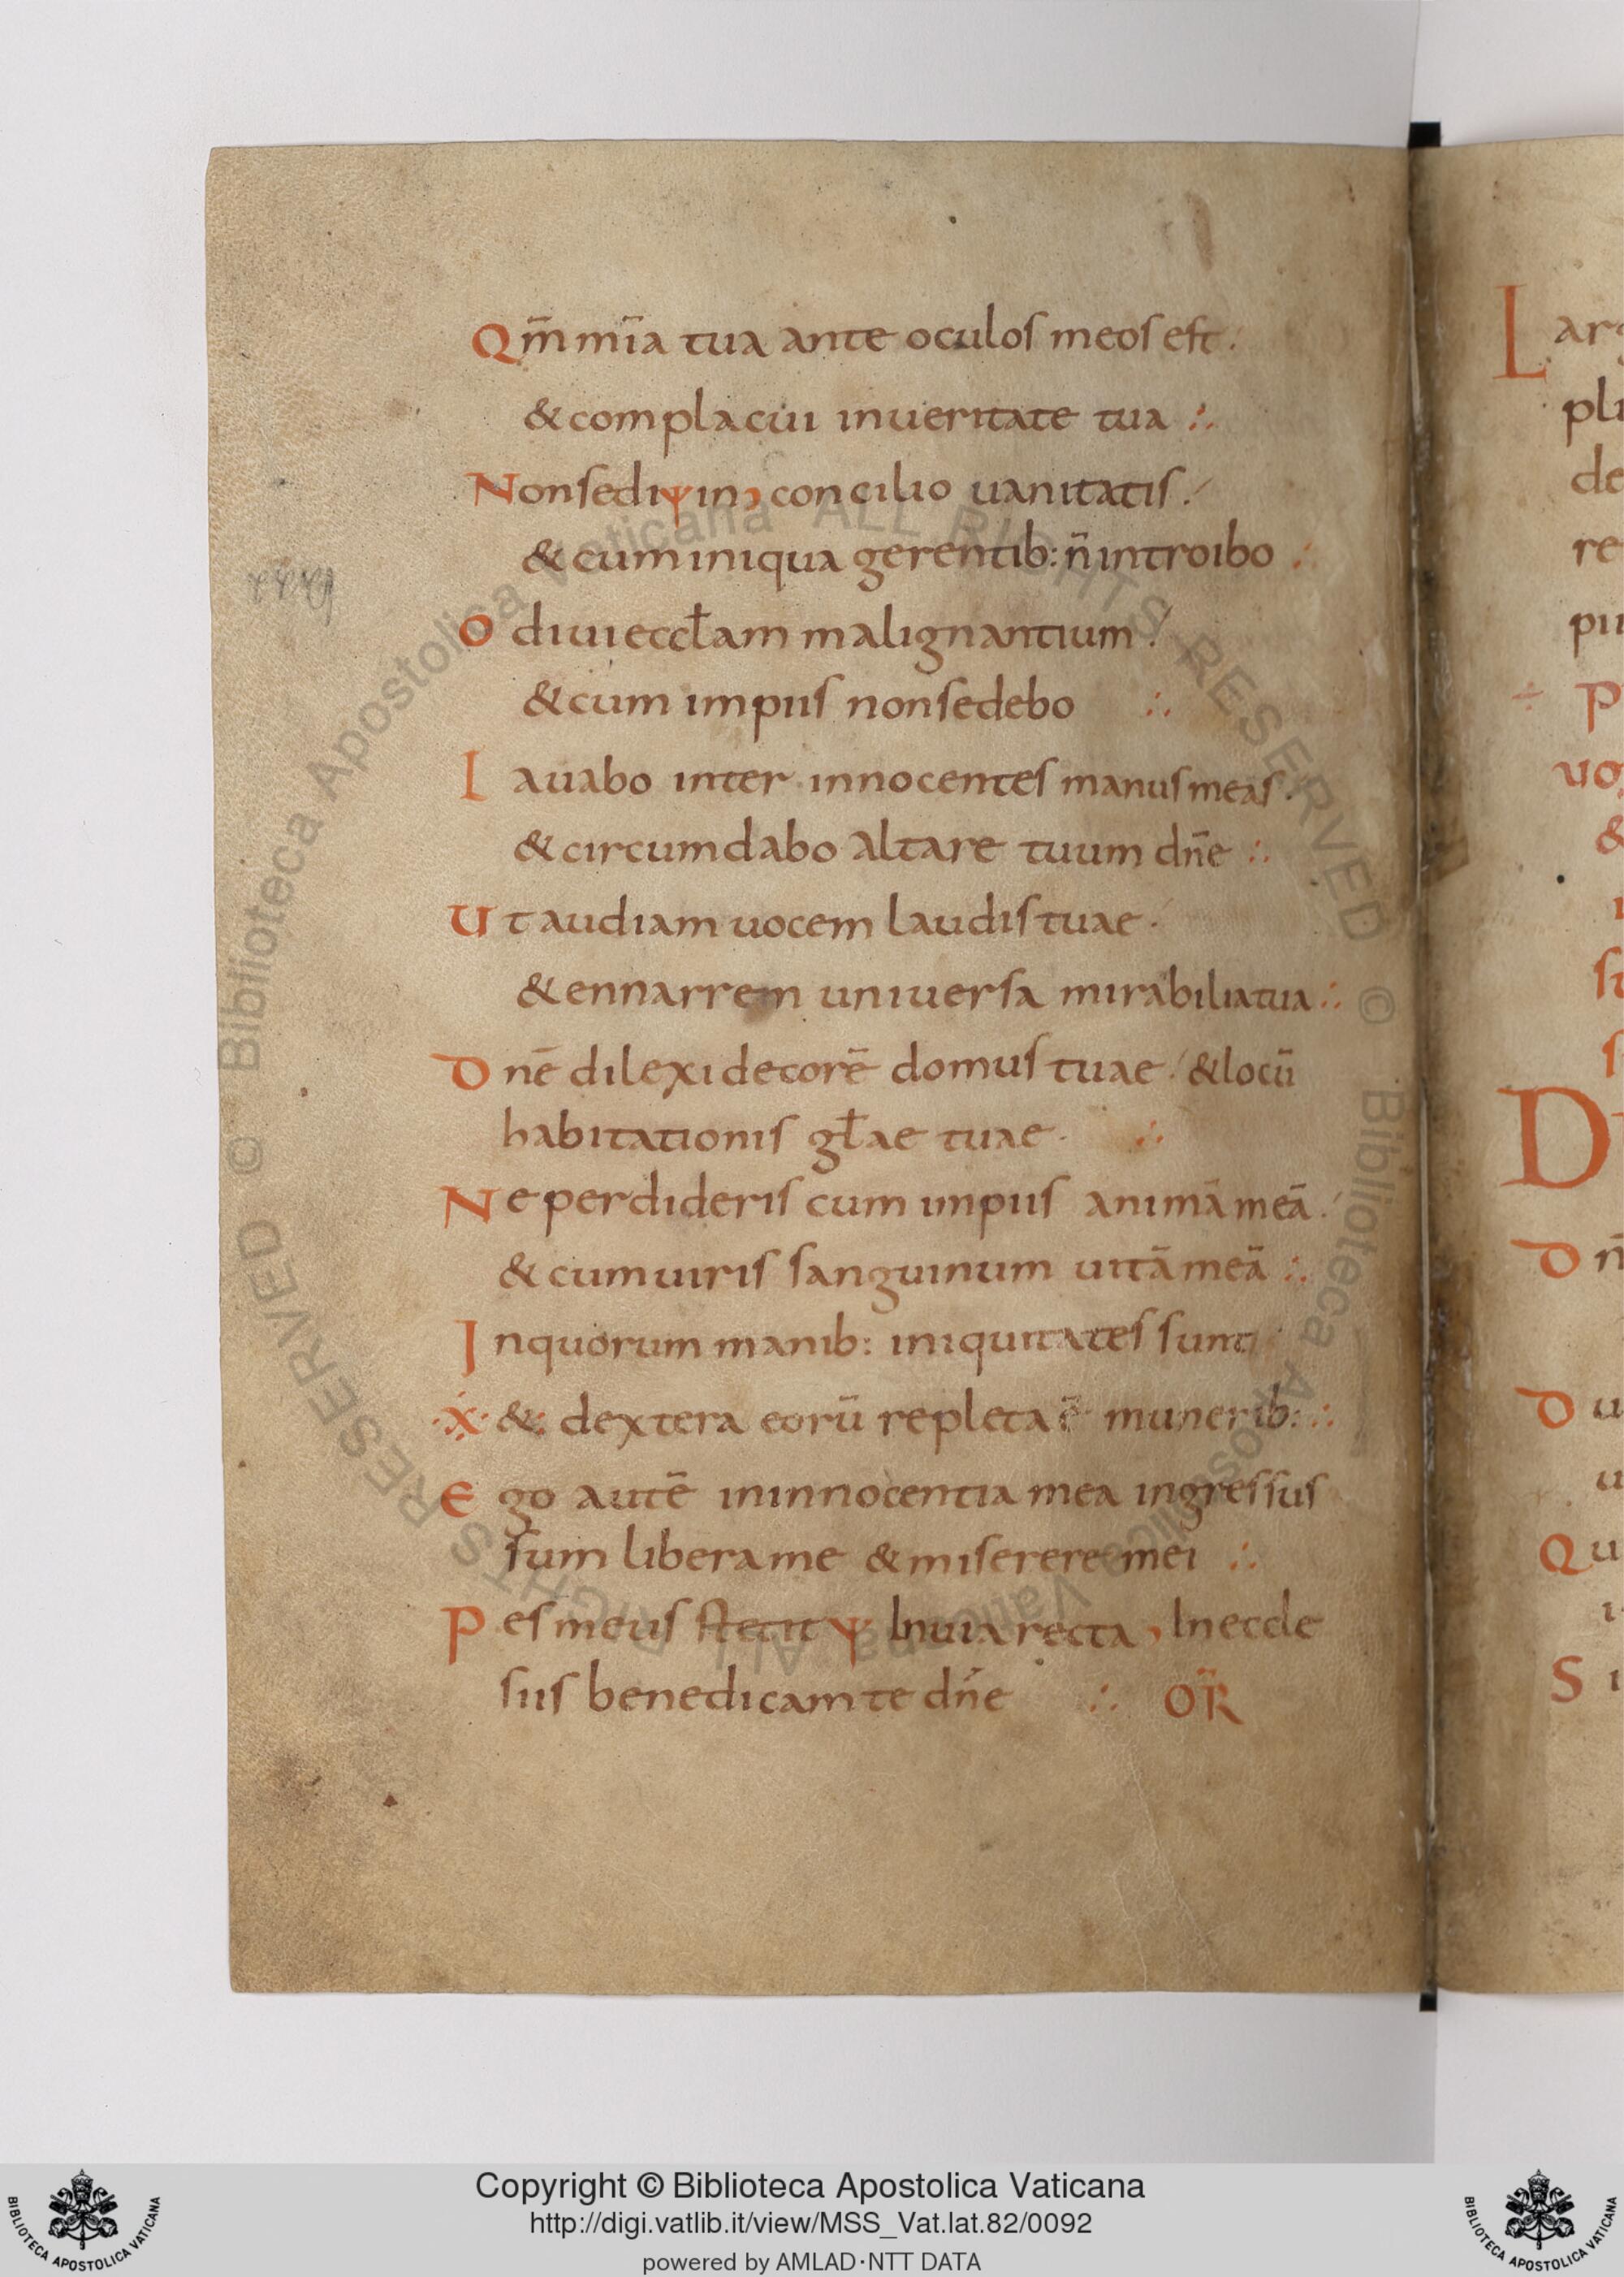 Qm̅ mi̅a tua ante oculos meos est.
& complacui in ueritate tua ∴
Non sedi ψ in concilio uanitatis ./
& cum iniqua gerentib: n̅ introibo ∴
Odiui eccl̅am malignantium ./
& cum impiis non sedebo ∴
Lauabo inter innocentes manus meas.
& circumdabo altare tuum dn̅e ∴
Ut audiam uocem laudis tuae ./
& ennarrem uniuersa mirabilia tua ∴
Dne̅ dilexi decore̅ domus tuae ./ & locu̅
habitationis gl̅ae tuae. ∴
Ne perdideris cum impiis anima̅ mea̅ ./
& cum uiris sanguinum uita̅ mea̅ ∴
In quorum manib: iniquitates sunt
·x· &: dextera eoru̅ repleta e̅ munerib: ∴
Ego aute̅ in innocentia mea ingressus
sum libera me & miserere mei ∴
Pes meus stetit ψ In uia recta, In eccle
siis benedicam te dn̅e ∴ OR̅
L
pli
de
re
pii
÷ P
uo
&
D
D n̅
D u
u
Qu
S i
Copyright © Biblioteca Apostolica Vaticana
http://digi.vatlib.it/view/MSS_Vat.lat.82/0092
powered by AMLAD·NTT DATA
BIBLIOTECA APOSTOLICA VATICANA
BIBLIOTECA APOSTOLICA VATICANA
© Biblioteca Apostolica Vaticana ALL RIGHTS RESERVED © Biblioteca Apostolica Vaticana ALL RIGHTS RESERVED